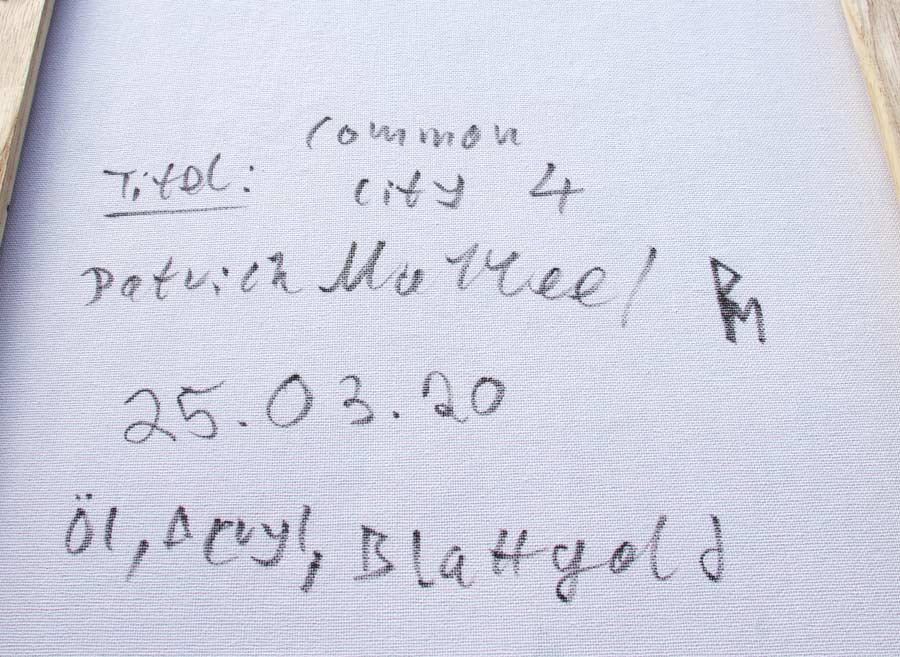 Common
Titel: City 4
Patrick PM
25.03.20
Öl, Acryl, Blattgold